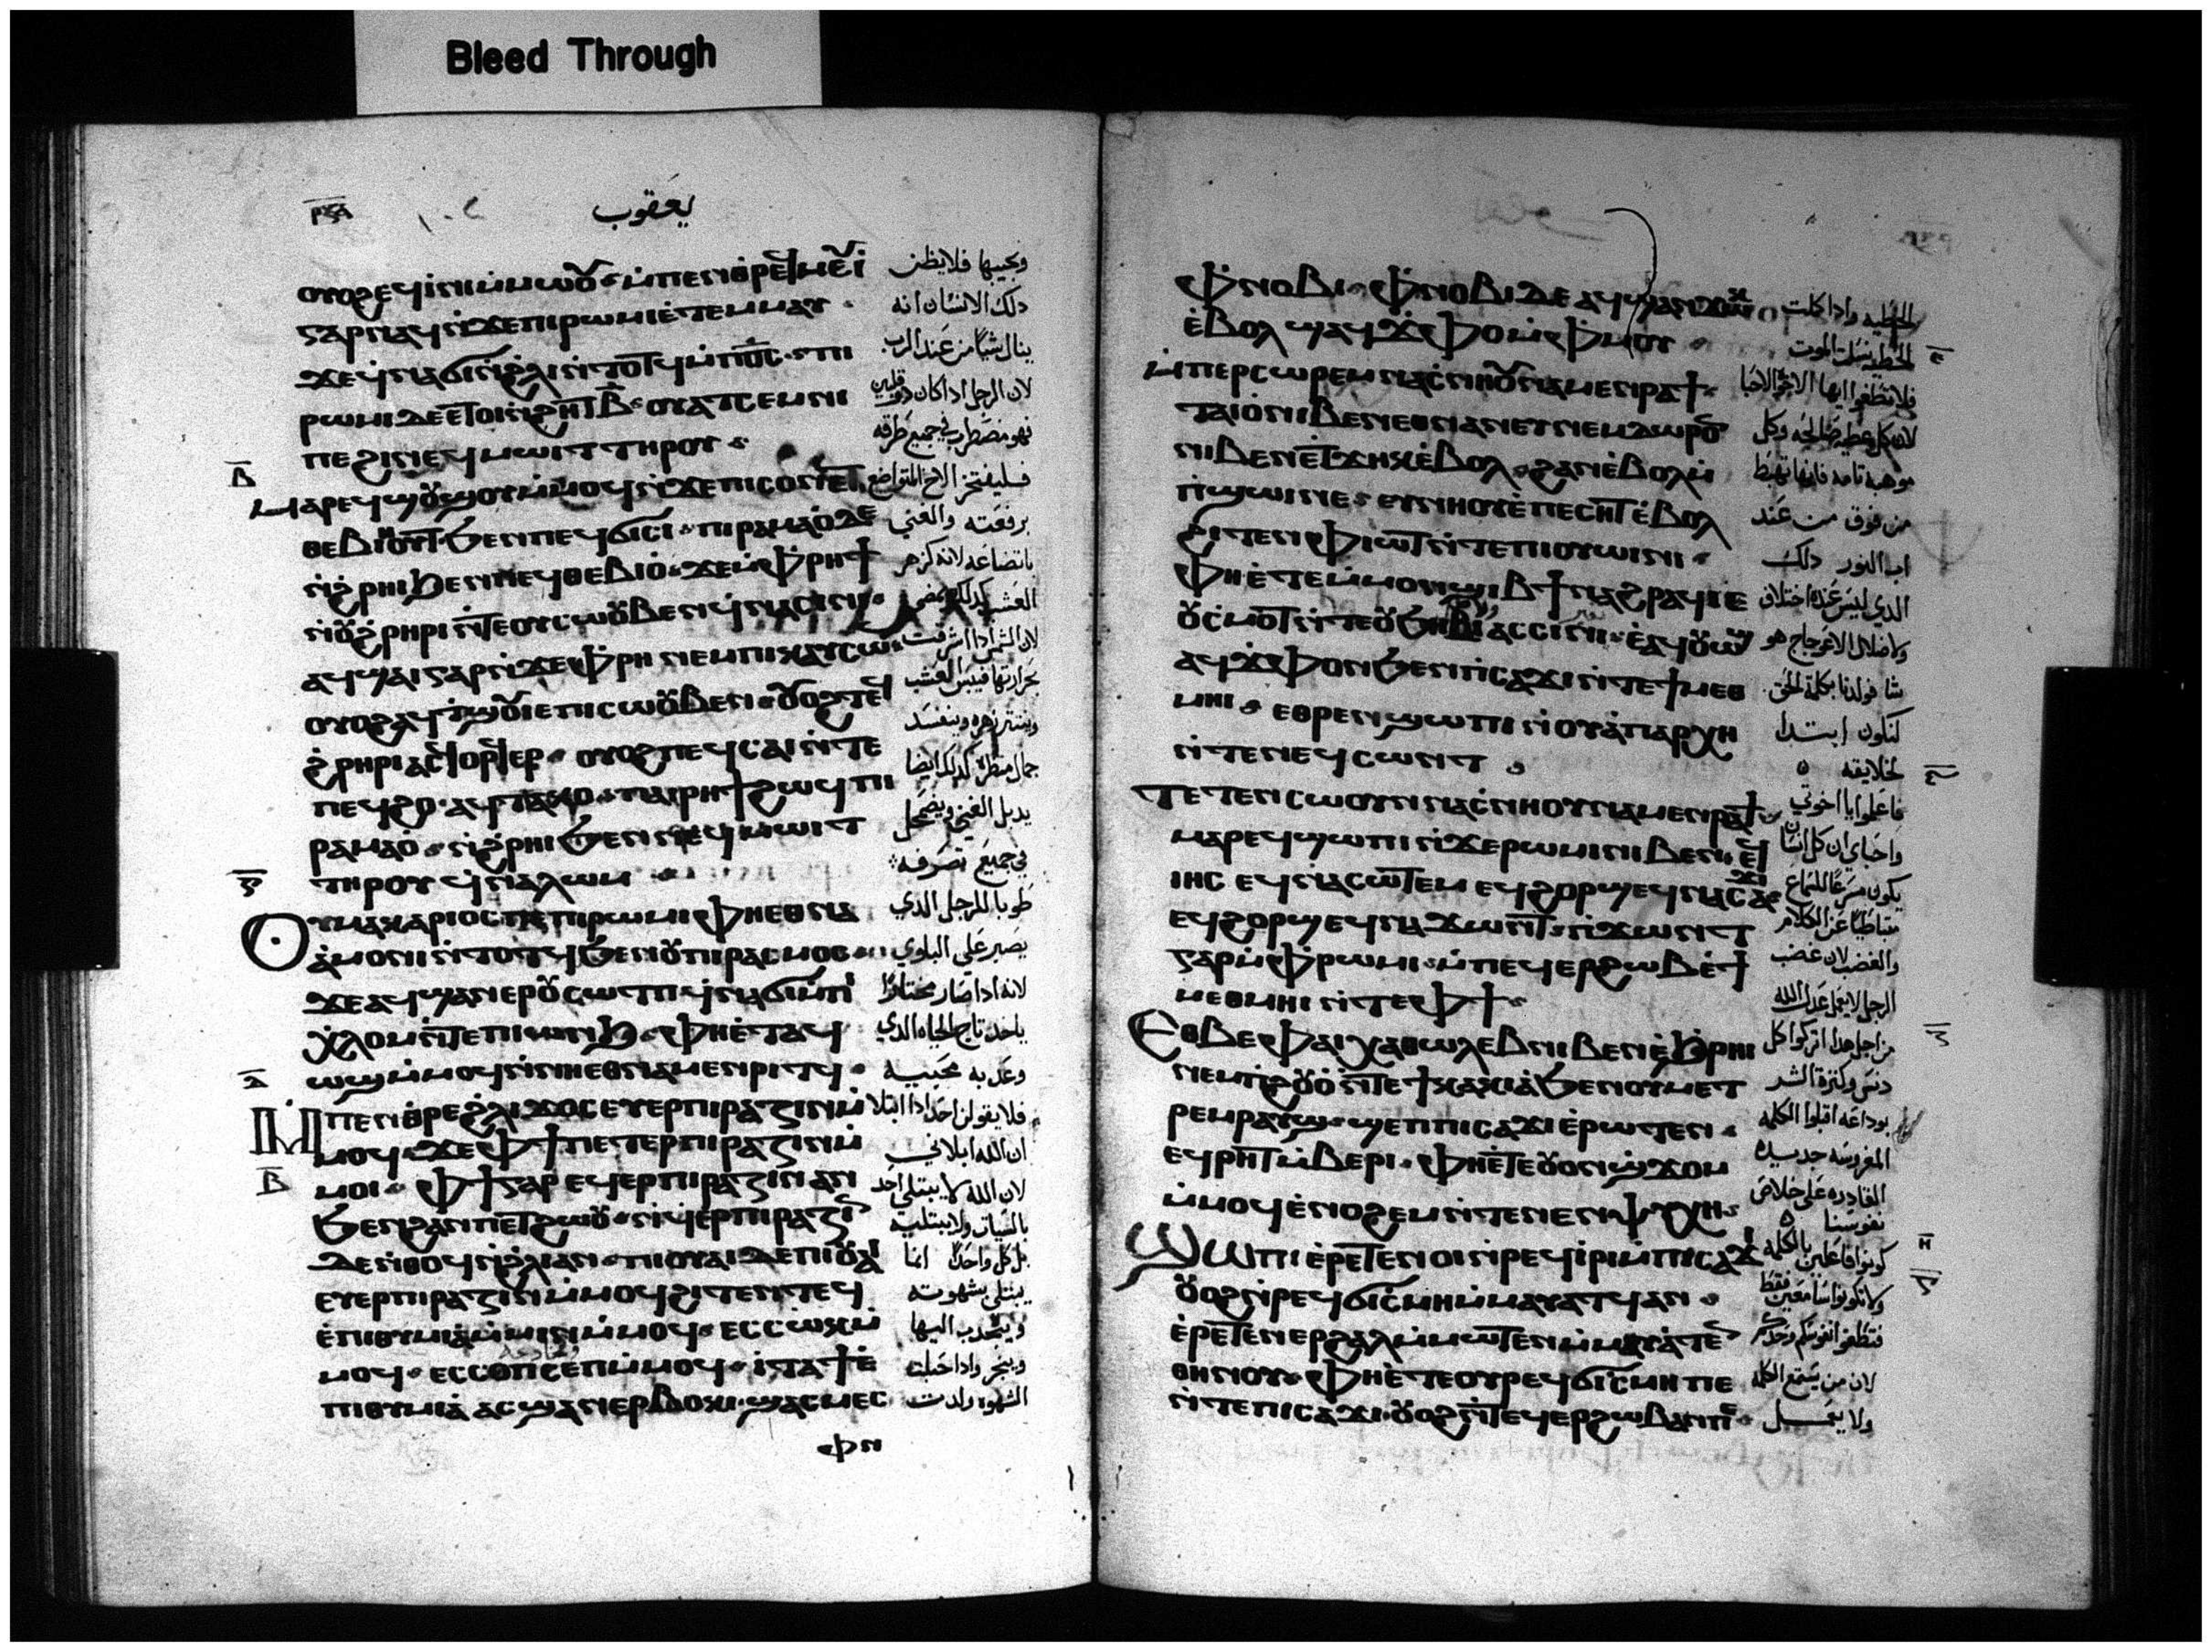 Bleed Through
يعقوب
ⲟⲩⲟϩ ⲉϥⲓⲛⲓ ⲙⲙⲱⲟⲩ ⲙⲡⲉⲛⲑⲣⲉϥⲙⲉⲩⲓ
ⲅⲁⲣ ⲛϫⲉ ⲡⲓⲣⲱⲙⲓ ⲉⲧⲉⲙⲙⲁⲩ
ϫⲉ ϥⲛⲁϭⲓ ⲛϩⲗⲓ ⲛⲧⲟⲧϥ ⲙⲡⲟⲥ
ⲣⲱⲙⲓ ⲇⲉ ⲉⲧⲟⲓ ⲛϩⲏⲧ ⲃ ⲟⲩⲁⲧⲥⲉⲙⲛⲓ
ⲡⲉ ϩⲓ ⲛⲉϥⲙⲱⲓⲧ ⲧⲏⲣⲟⲩ
ⲙⲁⲣⲉϥϣⲟⲩϣⲟⲩ ⲙⲙⲟϥ ⲛϫⲉ ⲡⲓⲥⲟⲛ ⲉⲧ
ⲑⲉⲃⲓⲏⲟⲩⲧ ϧⲉⲛ ⲡⲉϥϭⲓⲥⲓ ⲡⲓⲣⲁⲙⲁⲟ ⲇⲉ
ⲛϩⲣⲏⲓ ϧⲉⲛ ⲡⲉϥⲑⲉⲃⲓⲟ ϫⲉ ⲙⲫⲣⲏϯ
ⲛⲟⲩϩⲣⲏⲣⲓ ⲛⲧⲉ ⲟⲩⲥⲱⲟⲩⲃⲉⲛ ϥⲛⲁⲥⲓⲛⲓ
ⲁϥϣⲁⲓ ⲅⲁⲣ ⲛϫⲉ ⲫⲣⲏ ⲛⲉⲙ ⲡⲓⲕⲁⲩⲥⲱⲛ
ⲟⲩⲟϩ ⲁϥⲧϣⲟⲩⲓⲉ ⲡⲓⲥⲱⲟⲩⲃⲉⲛ ⲟⲩⲟϩ ⲧⲉϥ
ϩⲣⲏⲣⲓ ⲁⲥϥⲟⲣϥⲉⲣ ⲟⲩⲟϩ ⲡⲉ ϥⲥⲁⲓ ⲛⲧⲉ
ⲡⲉϥϩⲟ ⲁϥⲧⲁⲕⲟ ⲡⲁⲓⲣⲏϯ ϩⲱϥ ⲡⲓ
ⲣⲁⲙⲁⲟ ⲛϩⲣⲏⲓ ϧⲉⲛ ⲛⲉϥⲙⲱⲓⲧ
ⲧⲏⲣⲟⲩ ϥⲛⲁⲗⲱⲙ
ⲟⲩⲙⲁⲕⲁⲣⲓⲟⲥ ⲡⲉ ⲡⲓⲣⲱⲙⲓ ⲫⲏⲉⲑⲛⲁ
ⲁⲙⲟⲛⲓ ⲛⲧⲟⲧϥ ϧⲉⲛ ⲟⲩⲡⲓⲣⲁⲥⲙⲟⲥ
ϫⲉ ⲁϥϣⲁⲛⲉⲣ ⲟⲩⲥⲱⲧⲡ ϥⲛⲁϭⲓ ⲙⲡⲓ
ⲭⲗⲟⲙ ⲛⲧⲉ ⲡⲓⲱⲛϧ ⲫⲏⲉⲧⲁϥ
ⲱϣ ⲙⲙⲟϥ ⲛⲛⲏⲉⲑⲛⲁⲙⲉⲛⲣⲓⲧϥ
ⲙⲡⲉⲛⲑⲣⲉ ϩⲗⲓ ϫⲟⲥ ⲉⲩⲉⲣⲡⲓⲣⲁⲍⲓⲛ ⲙ
ⲙⲟϥ ϫⲉ ⲫϯ ⲡⲉⲧⲉⲣⲡⲓⲣⲁⲍⲓⲛ ⲙ
ⲙⲟⲓ ⲫϯ ⲅⲁⲣ ⲉϥⲉⲣⲡⲓⲣⲁⲍⲓⲛ ⲁⲛ
ϧⲉⲛ ϩⲁⲛⲡⲉⲧϩⲱⲟⲩ ⲛϥⲉⲣⲡⲓⲣⲁⲍⲓⲛ
ⲇⲉ ⲛⲑⲟϥ ⲛϩⲗⲓ ⲁⲛ ⲡⲓⲟⲩⲁⲓ ⲇⲉ ⲡⲓⲟⲩⲁⲓ
ⲉⲩⲉⲣⲡⲓⲣⲁⲍⲓⲛ ⲙⲙⲟϥ ϩⲓⲧⲉⲛ ⲧⲉϥ
ⲉⲡⲓⲑⲩⲙⲓⲁ ⲙⲙⲓⲛ ⲙⲙⲟϥ ⲉⲥⲥⲱⲕ ⲙ
ⲙⲟϥ ⲉⲥⲥⲟⲛⲥⲉⲛ ⲙⲙⲟϥ ⲓⲧⲁ ϯⲉ
ⲡⲓⲑⲩⲙⲓⲁ ⲁⲥϣⲁⲛⲉⲣⲃⲟⲕⲓ ϣⲁⲥⲙⲉⲥ
ⲫⲛ
ويجيبها فلا يظن
ذلك الانسان انه
ينال شيا من عند الرب
لان الرجل اذا كان ذو قلبين
فهو مضطرب في جميع طرقه
فليفتخر الاخ المتواضع
برفعته والغني
باتضاعه لانه كزهر
العشب كذلك يمضي
لان الشمس اذا اشرقت
بحرارتها فييبس العشب
وينتثر زهره ويفسد
جمال منظره كذلك ايضا
يدبل الغني ويضمحل
في جميع تصرفه
طوبا للرجل الذي
يصبر على البلوي
لانه اذا صار مختارا
ياخد تاج الحياه الذي
وعد به محبيه
فلا يقولن احد اذا ابتلا
ان الله ابلاني
لان الله لا يبتلي احد
بالسيات ولا يبتليه
بل كل واحد انما
يبتلي بشهوته
وينجدب اليها
وينجر واذا حبلت
الشهوه ولدت
ⲫⲛⲟⲃⲓ ⲫⲛⲟⲃⲓ ⲇⲉ ⲁϥϣⲁⲛϫⲱⲕ
ⲉⲃⲟⲗ ϣⲁϥϫⲫⲟ ⲙⲫⲙⲟⲩ
ⲙⲡⲉⲣⲥⲱⲣⲉⲙ ⲛⲁⲥⲛⲏⲟⲩ ⲛⲁⲙⲉⲛⲣⲁϯ
ⲧⲁⲓⲟ ⲛⲓⲃⲉⲛ ⲉⲑⲛⲁⲛⲉⲩ ⲛⲉⲙ ⲇⲱⲣⲟⲛ
ⲛⲓⲃⲉⲛ ⲉⲧϫⲏⲕ ⲉⲃⲟⲗ ϩⲁⲛⲉⲃⲟⲗ ⲙ
ⲡϣⲱⲓ ⲛⲉ ⲉⲩⲛⲏⲟⲩ ⲉⲡⲉⲥⲏⲧ ⲉⲃⲟⲗ
ϩⲓⲧⲉⲛ ⲫⲓⲱⲧ ⲛⲧⲉ ⲡⲓⲟⲩⲱⲓⲛⲓ
ⲫⲏⲉⲧⲉ ⲙⲙⲟⲛ ϣⲓⲃϯ ⲛⲁϩⲣⲁϥ ⲓⲉ
ⲟⲩⲥⲙⲟⲧ ⲛⲧⲉ ⲟⲩϧⲏⲓⲃⲓ ⲁⲥⲥⲓⲛⲓ ⲉⲁϥⲟⲩⲱϣ
ⲁϥϫⲫⲟⲛ ϧⲉⲛ ⲡⲥⲁϫⲓ ⲛⲧⲉ ϯⲙⲉⲑ
ⲙⲏⲓ ⲉⲑⲣⲉⲛϣⲱⲡⲓ ⲛⲟⲩⲁⲡⲁⲣⲭⲏ
ⲛⲧⲉ ⲛⲉϥⲥⲱⲛⲧ
ⲧⲉⲧⲉⲛⲥⲱⲟⲩⲛ ⲛⲁⲥⲛⲏⲟⲩ ⲛⲁⲙⲉⲛⲣⲁϯ
ⲙⲁⲣⲉϥϣⲱⲡⲓ ⲛϫⲉ ⲣⲱⲙⲓ ⲛⲓⲃⲉⲛ ⲉϥ
ⲓⲏⲥ ⲉϥⲛⲁⲥⲱⲧⲉⲙ ⲉϥϩⲟⲣϣ ⲉϥⲛⲁⲥⲁϫⲓ
ⲉϥϩⲟⲣϣ ⲉϥⲛⲁϫⲱⲛⲧ ⲛϫⲱⲛⲧ
ⲅⲁⲣ ⲙⲫⲣⲱⲙⲓ ⲙⲡⲉϥⲉⲣϩⲱⲃ ⲉϯ
ⲙⲉⲑⲙⲏⲓ ⲛⲧⲉ ⲫϯ
ⲉⲑⲃⲉ ⲫⲁⲓ ⲭⲁ ⲑⲱⲗⲉⲃ ⲛⲓⲃⲉⲛ ⲉϧⲣⲏⲓ
ⲛⲉⲙ ⲡϩⲟⲩⲟ ⲛⲧⲉ ϯⲕⲁⲕⲓⲁ ϧⲉⲛ ⲟⲩⲙⲉⲧ
ⲣⲉⲙⲣⲁⲩϣ ϣⲉⲡ ⲡⲓⲥⲁϫⲓ ⲉⲣⲱⲧⲉⲛ
ⲉϥⲣⲏⲧ ⲙⲃⲉⲣⲓ ⲫⲏⲉⲧⲉ ⲟⲩⲟⲛ ϣϫⲟⲙ
ⲙⲙⲟϥ ⲉⲛⲟϩⲉⲙ ⲛⲧⲉ ⲛⲉⲛⲯⲩⲭⲏ
ϣⲱⲡⲓ ⲉⲣⲉⲧⲉⲛⲟⲓ ⲛⲣⲉϥⲓⲣⲓ ⲙⲡⲓⲥⲁϫⲓ
ⲟⲩⲟϩ ⲛⲣⲉϥϭⲓⲥⲙⲏ ⲙⲙⲁⲩⲁⲧϥ ⲁⲛ
ⲉⲣⲉⲧⲉⲛⲉⲣϩⲁⲗ ⲙⲙⲱⲧⲉⲛ ⲙⲙⲁⲩⲁⲧⲉⲛ
ⲑⲏⲛⲟⲩ ⲫⲏⲉⲧⲉ ⲟⲩⲣⲉϥϭⲓⲥⲙⲏ ⲡⲉ
ⲛⲧⲉ ⲡⲓⲥⲁϫⲓ ⲟⲩⲟϩ ⲛⲧⲉϥⲉⲣϩⲱⲃ ⲁⲛ ⲡⲉ
الخطيه واذا كملت
الخطيه نسلت الموت
فلا تضلوا ايها الاخوه الاحبا
لان كل عطيه صالحه وكل
موهبه تامه فانها تهبط
من فوق من عند
اب النور ذلك
الذي ليس عنده اختلاف
ولا ضلال الاعوجاج هو
شا فولدنا بكلمة الحق
لنكون ابتدا
لخلايقه
فاعلموا يا اخوتي
واحباي ان كل انسان
يكون مسرعا للسماع
متباطيا عن الكلام
والغضب لان غضب
الرجل لا يعمل عدل الله
من اجل هدا اتركوا كل
دنس وكثرة الشر
بوداعه اقبلوا الكلمه
المغروسه جديده
القادره على خلاص
نفوسنا
كونوا فاعلين بالكلمه
ولا تكونوا سامعين فقط
فتظلموا نفوسكم وحدكم
لان من يسمع الكلمه
ولا يعمل